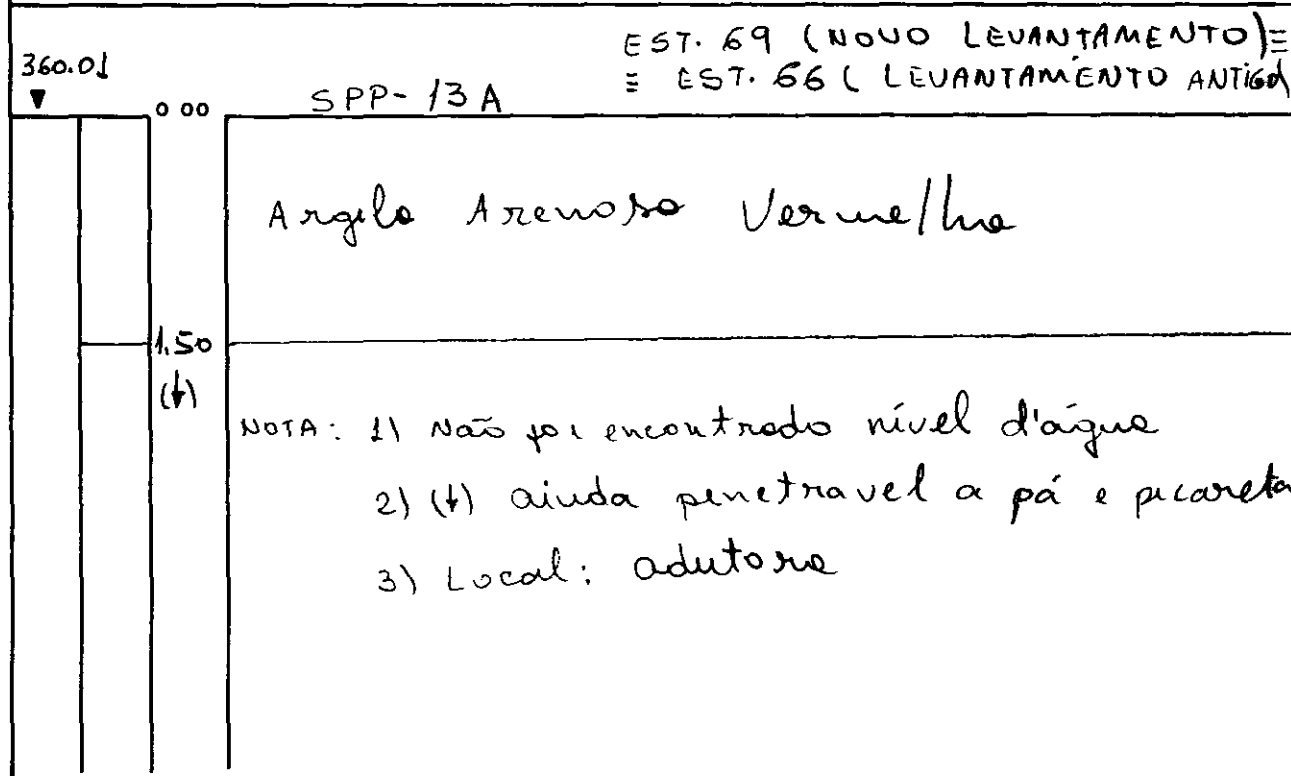 EST. 69 (NOVO LEVANTAMENTO)≡
≡ EST. 66 (LEVANTAMENTO ANTIGO)
360.01
▼
SPP-13A
0 00
Argila Arenosa Vermelha
1.50
(↓)
NOTA: 1) Não foi encontrado nível d'água
2) (↓) ainda penetravel a pá e picareta
3) Local: adutora